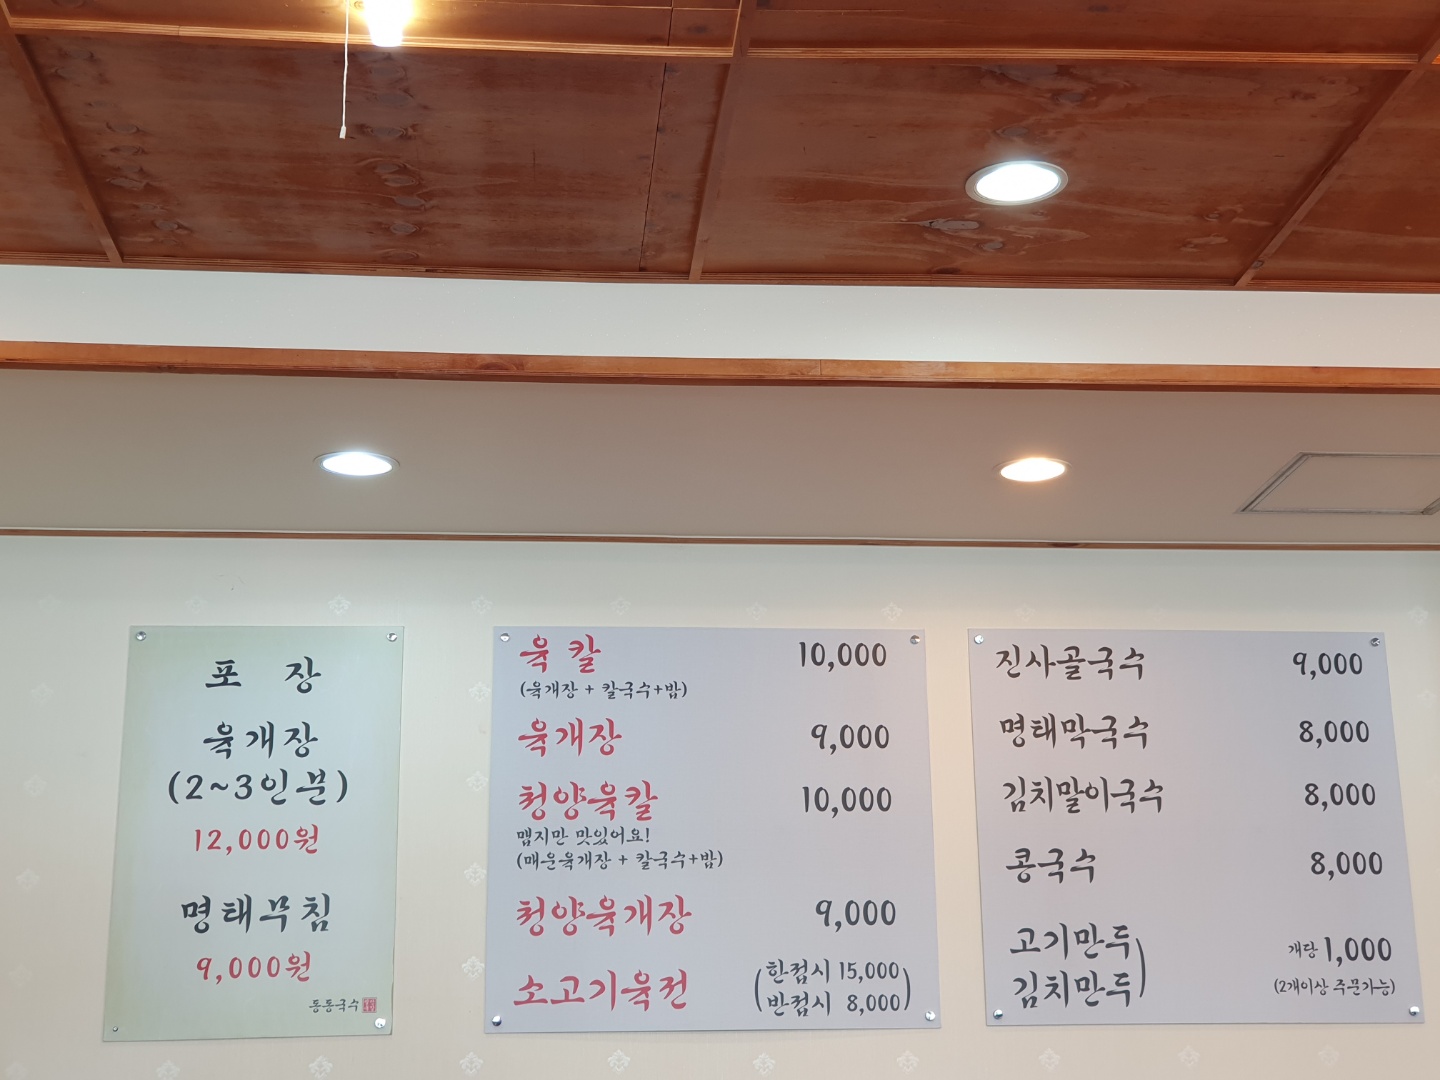 포 장
육개장
(2~3인분)
12,000원
명태무침
9,000원
동동국수
육칼 10,000
(육개장 + 칼국수+밥)
육개장 9,000
청양육칼 10,000
맵지만 맛있어요!
(매운육개장 + 칼국수+밥)
청양육개장 9,000
소고기육전 (한접시 15,000
반접시 8,000)
진사골국수 9,000
명태막국수 8,000
김치말이국수 8,000
콩국수 8,000
고기만두
김치만두) 개당 1,000
(2개이상 주문가능)